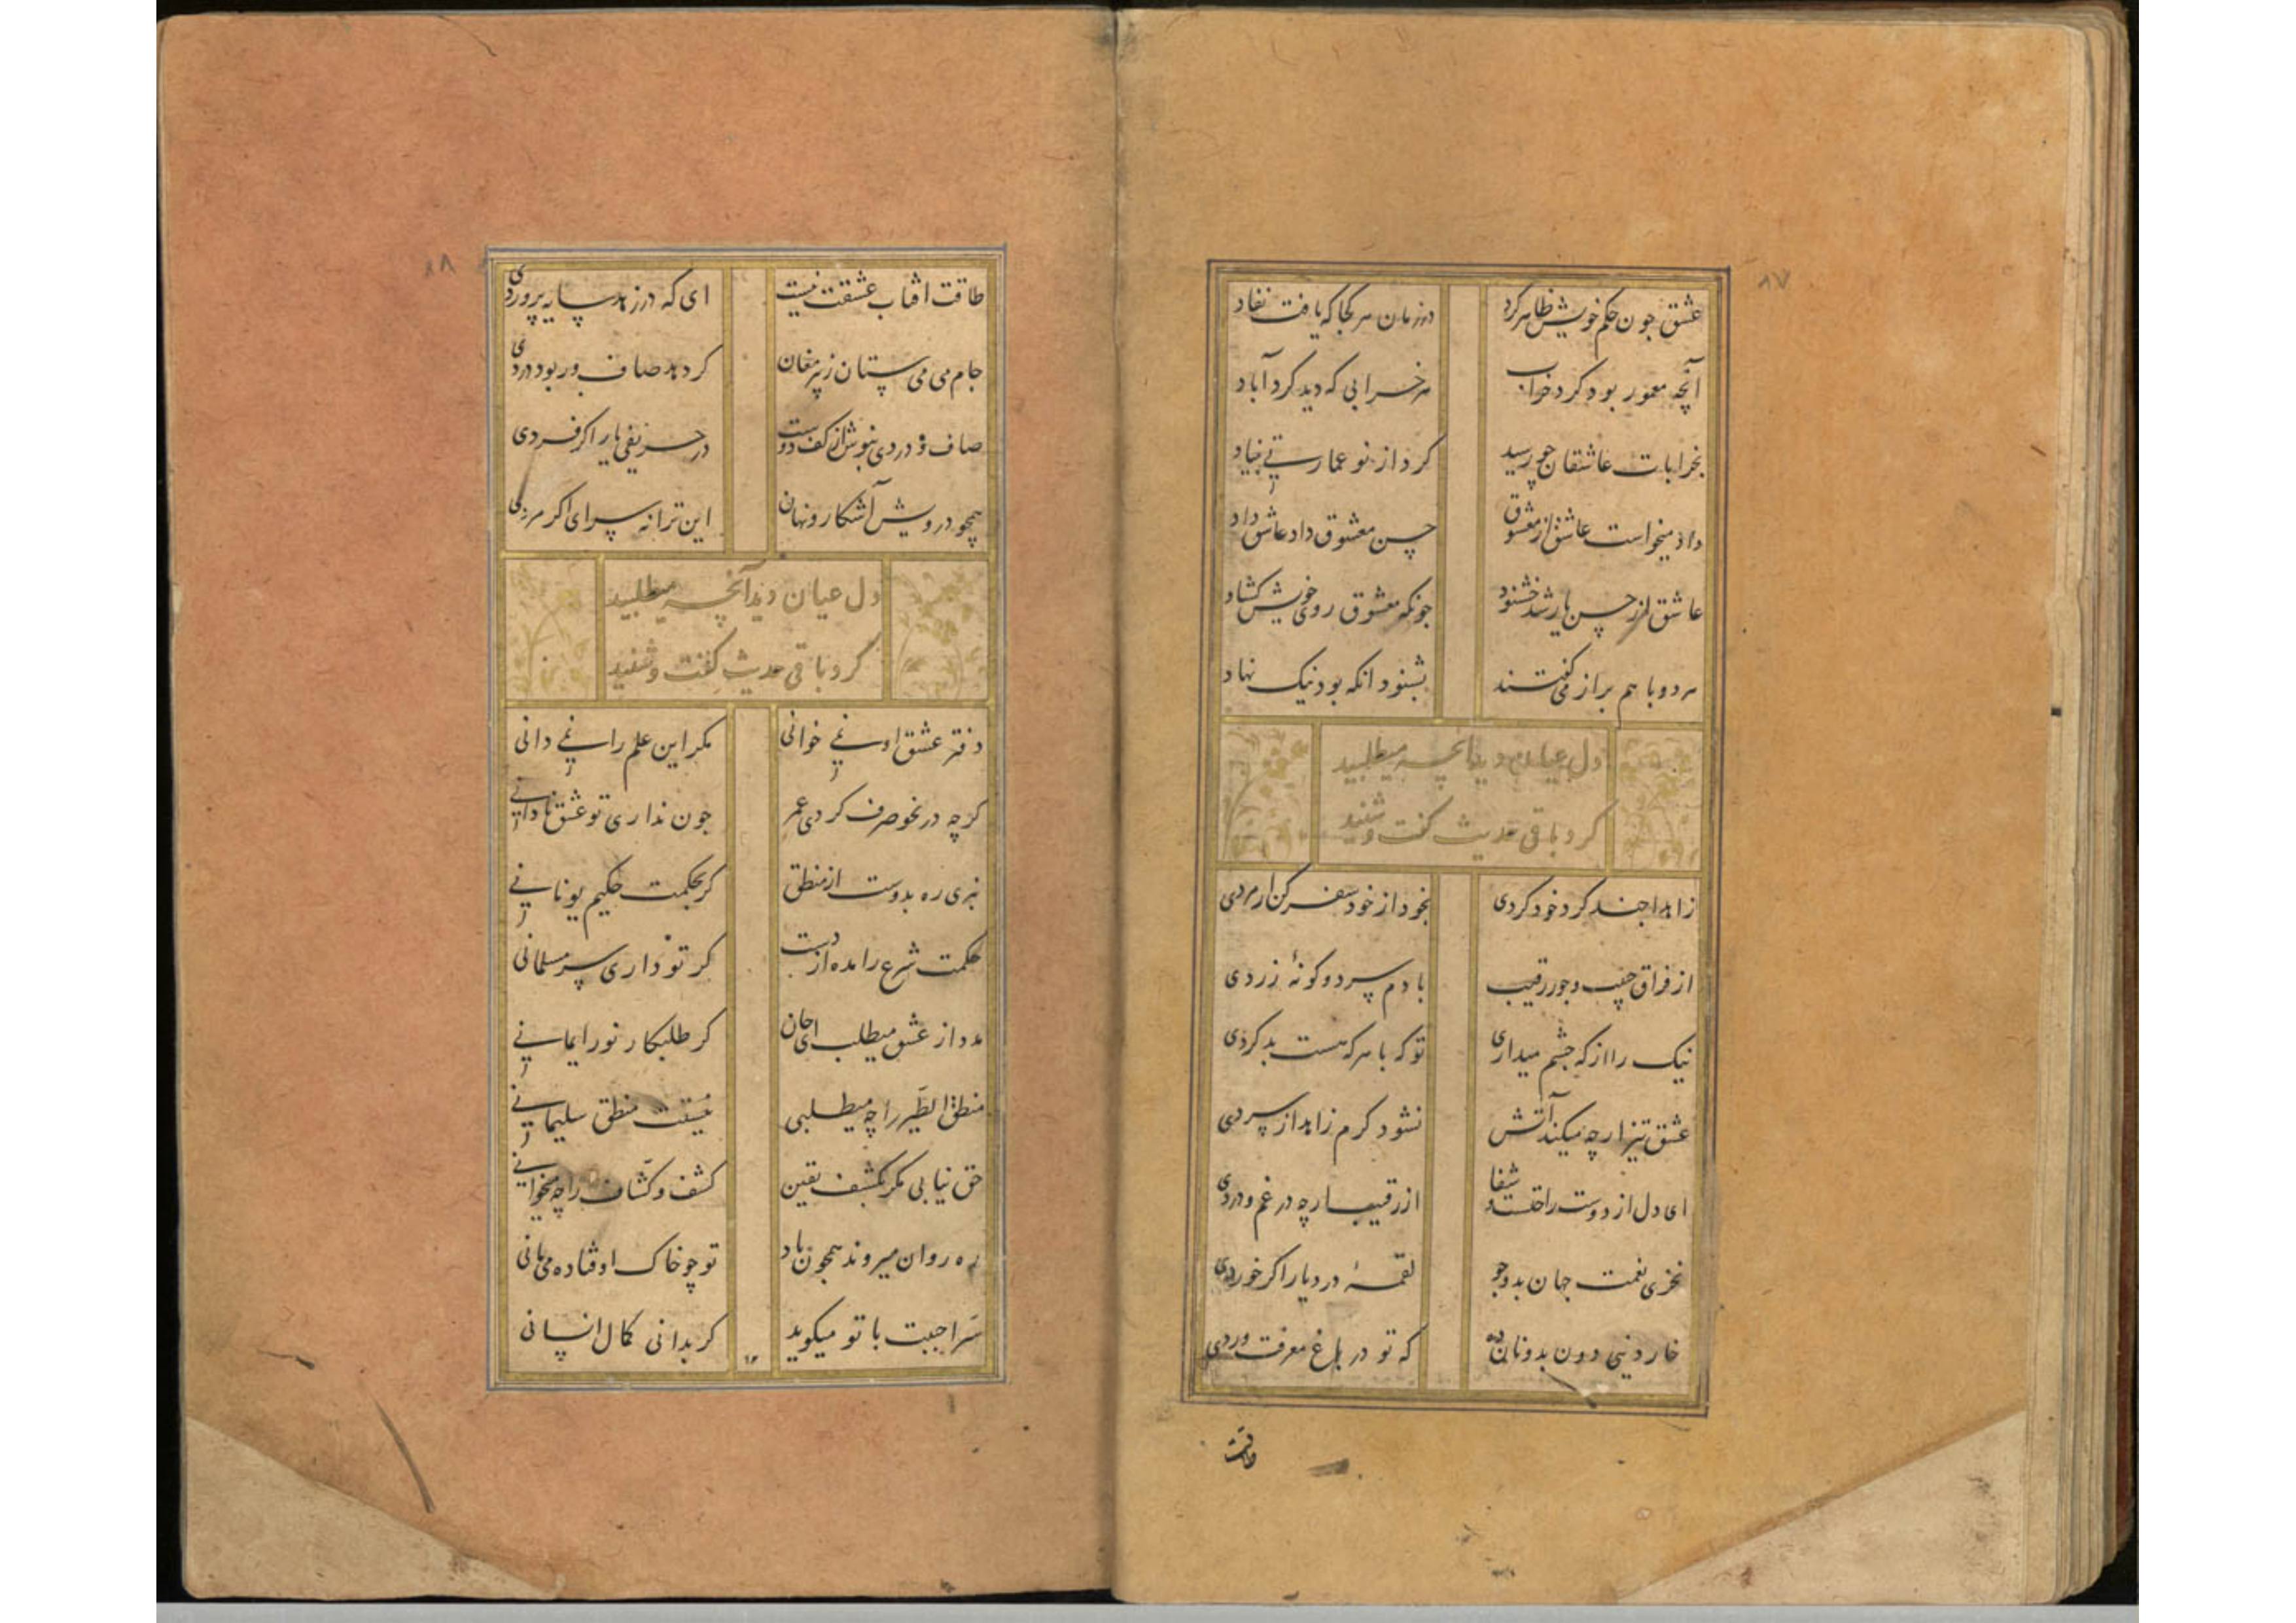 ۸۷
عشق جون حکم خویش ظاهر کرد در زمان هر کجا که یافت نفاد
آنچه معمور بود کرد خراب هر خرابی که دید کرد آباد
بخرابات عاشقان چو رسید کرد از نو عمارتی بنیاد
داد میخواست عاشق از معشوق حسن معشوق داد عاشق داد
عاشق از حسن یار شد خشنود جونکه معشوق روی خویش کشاد
هر دو با هم براز می کفتند بشنود انکه بود نیک نهاد
دل عیان دید آنچه میطلبید
کرد باقی حدیث کفت و شنید
زاهدا جند کرد خود کردی بخود از خود سفر کن ار مردی
از فراق حبیب و جور رقیب با دم سرد و کونهٔ زردی
نیک را از که جشم میداری تو که با هر که هست بد کردی
عشق تیز ار چه میکند آتش نشود کرم زاهد از سردی
ای دل از دوست راحتست و شفا از رقیب ار چه در غم و دردی
نخری نعمت جهان بدو جو لقمهٔ درد یار اکر خوردی
خار دنیی دون بدونان ده که تو در باغ معرفت وردی
طاقت
۸۸
طاقت افتاب عشقت نیست ای که در زهد سایه پروردی
جام می می ستان ز پیر مغان کر دهد صاف ور بود دردی
صاف و دردی بنوش از کف دوست در حریفی یار اکر فردی
همچو درویش آشکار و نهان این ترانه سرای اکر مردی
دل عیان دید آنچه میطلبید
کرد باقی حدیث کفت و شنید
دفتر عشق او نمی خوانی مکر این علم را نمی دانی
کرچه در نحو صرف کردی عمر جون نداری تو عشق نادانی
نبری ره بدوست از منطق کر بحکمت حکیم یونانی
حکمت شرع را مده از دست کر تو داری سر مسلمانی
مدد از عشق میطلب ای جان کر طلبکار نور ایمانی
منطق الطیر را چه میطلبی نیستت منطق سلیمانی
حق نیابی مکر بکشف یقین کشف و کشاف را چه میخوانی
ره روان میروند همجون باد تو چو خاک اوفتاده می مانی
سر احببت با تو میکوید کر بدانی کمال انسانی